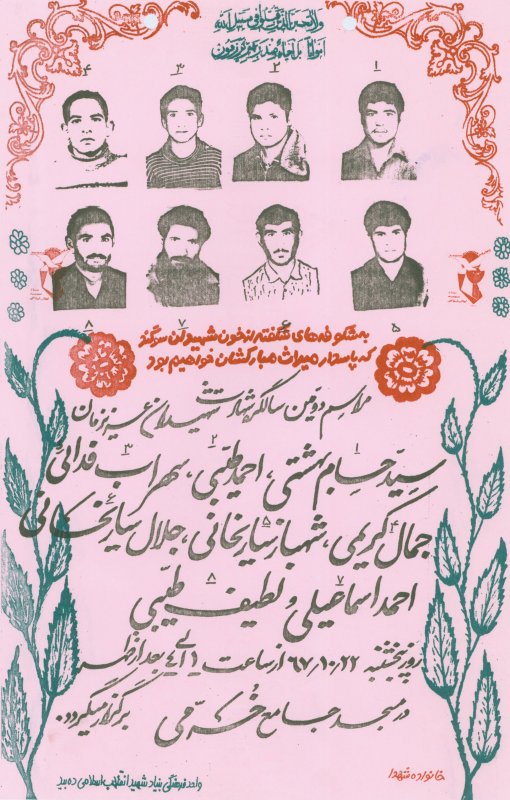 ولا تحسبن الذین قتلوا فی سبیل الله
امواتا بل احیاء عند ربهم یرزقون
۱ ۲ ۳ ۴
۵ ۶ ۷ ۸
به شکوفه‌های شکفته از خون شهیدان سوگند
که پاسدار میراث مبارکشان خواهیم بود
مراسم دومین سالگرد شهادت شهیدان عزیزمان
۱ ۲ ۳
سید حسام بهشتی، احمد طیبی، سهراب فدائی
۴ ۵ ۶
جمال کریمی، شهباز سیارخانی، جلال سیارخانی
۷ ۸
احمد اسماعیلی و لطیف طیبی
روز پنجشنبه ۶۷،۱۰،۲۲ از ساعت ۱ الی ۴ بعد از ظهر
در مسجد جامع خرمی برگزار میگردد.
خانواده شهدا
واحد فرهنگی بنیاد شهید انقلاب اسلامی ده بید